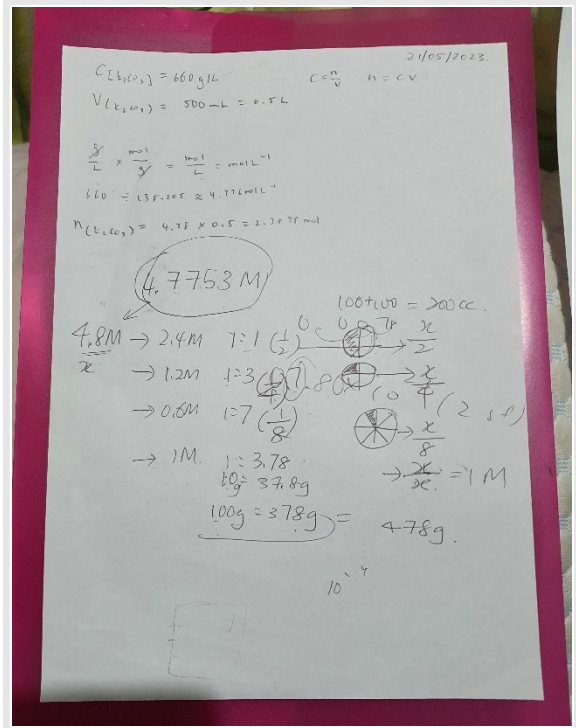 21/05/2023
C[K₂CO₃] = 660 g/L
C = n/V n = CV
V(K₂CO₃) = 500mL = 0.5L
g/L × mol/g = mol/L = molL⁻¹
660 ÷ 138.205 ≈ 4.776molL⁻¹
n(K₂CO₃) = 4.78 × 0.5 = 2.3878 mol
4.7753 M
100+100 = 200cc.
4.8M → 2.4M 1:1 (1/2) → x/2
x
→ 1.2M 1:3 → x/4
(2 sf)
→ 0.6M 1:7 (1/8) → x/8
→ 1M 1:3.78 → x/x = 1M
10g = 37.8g
100g = 378g = 478g.
10